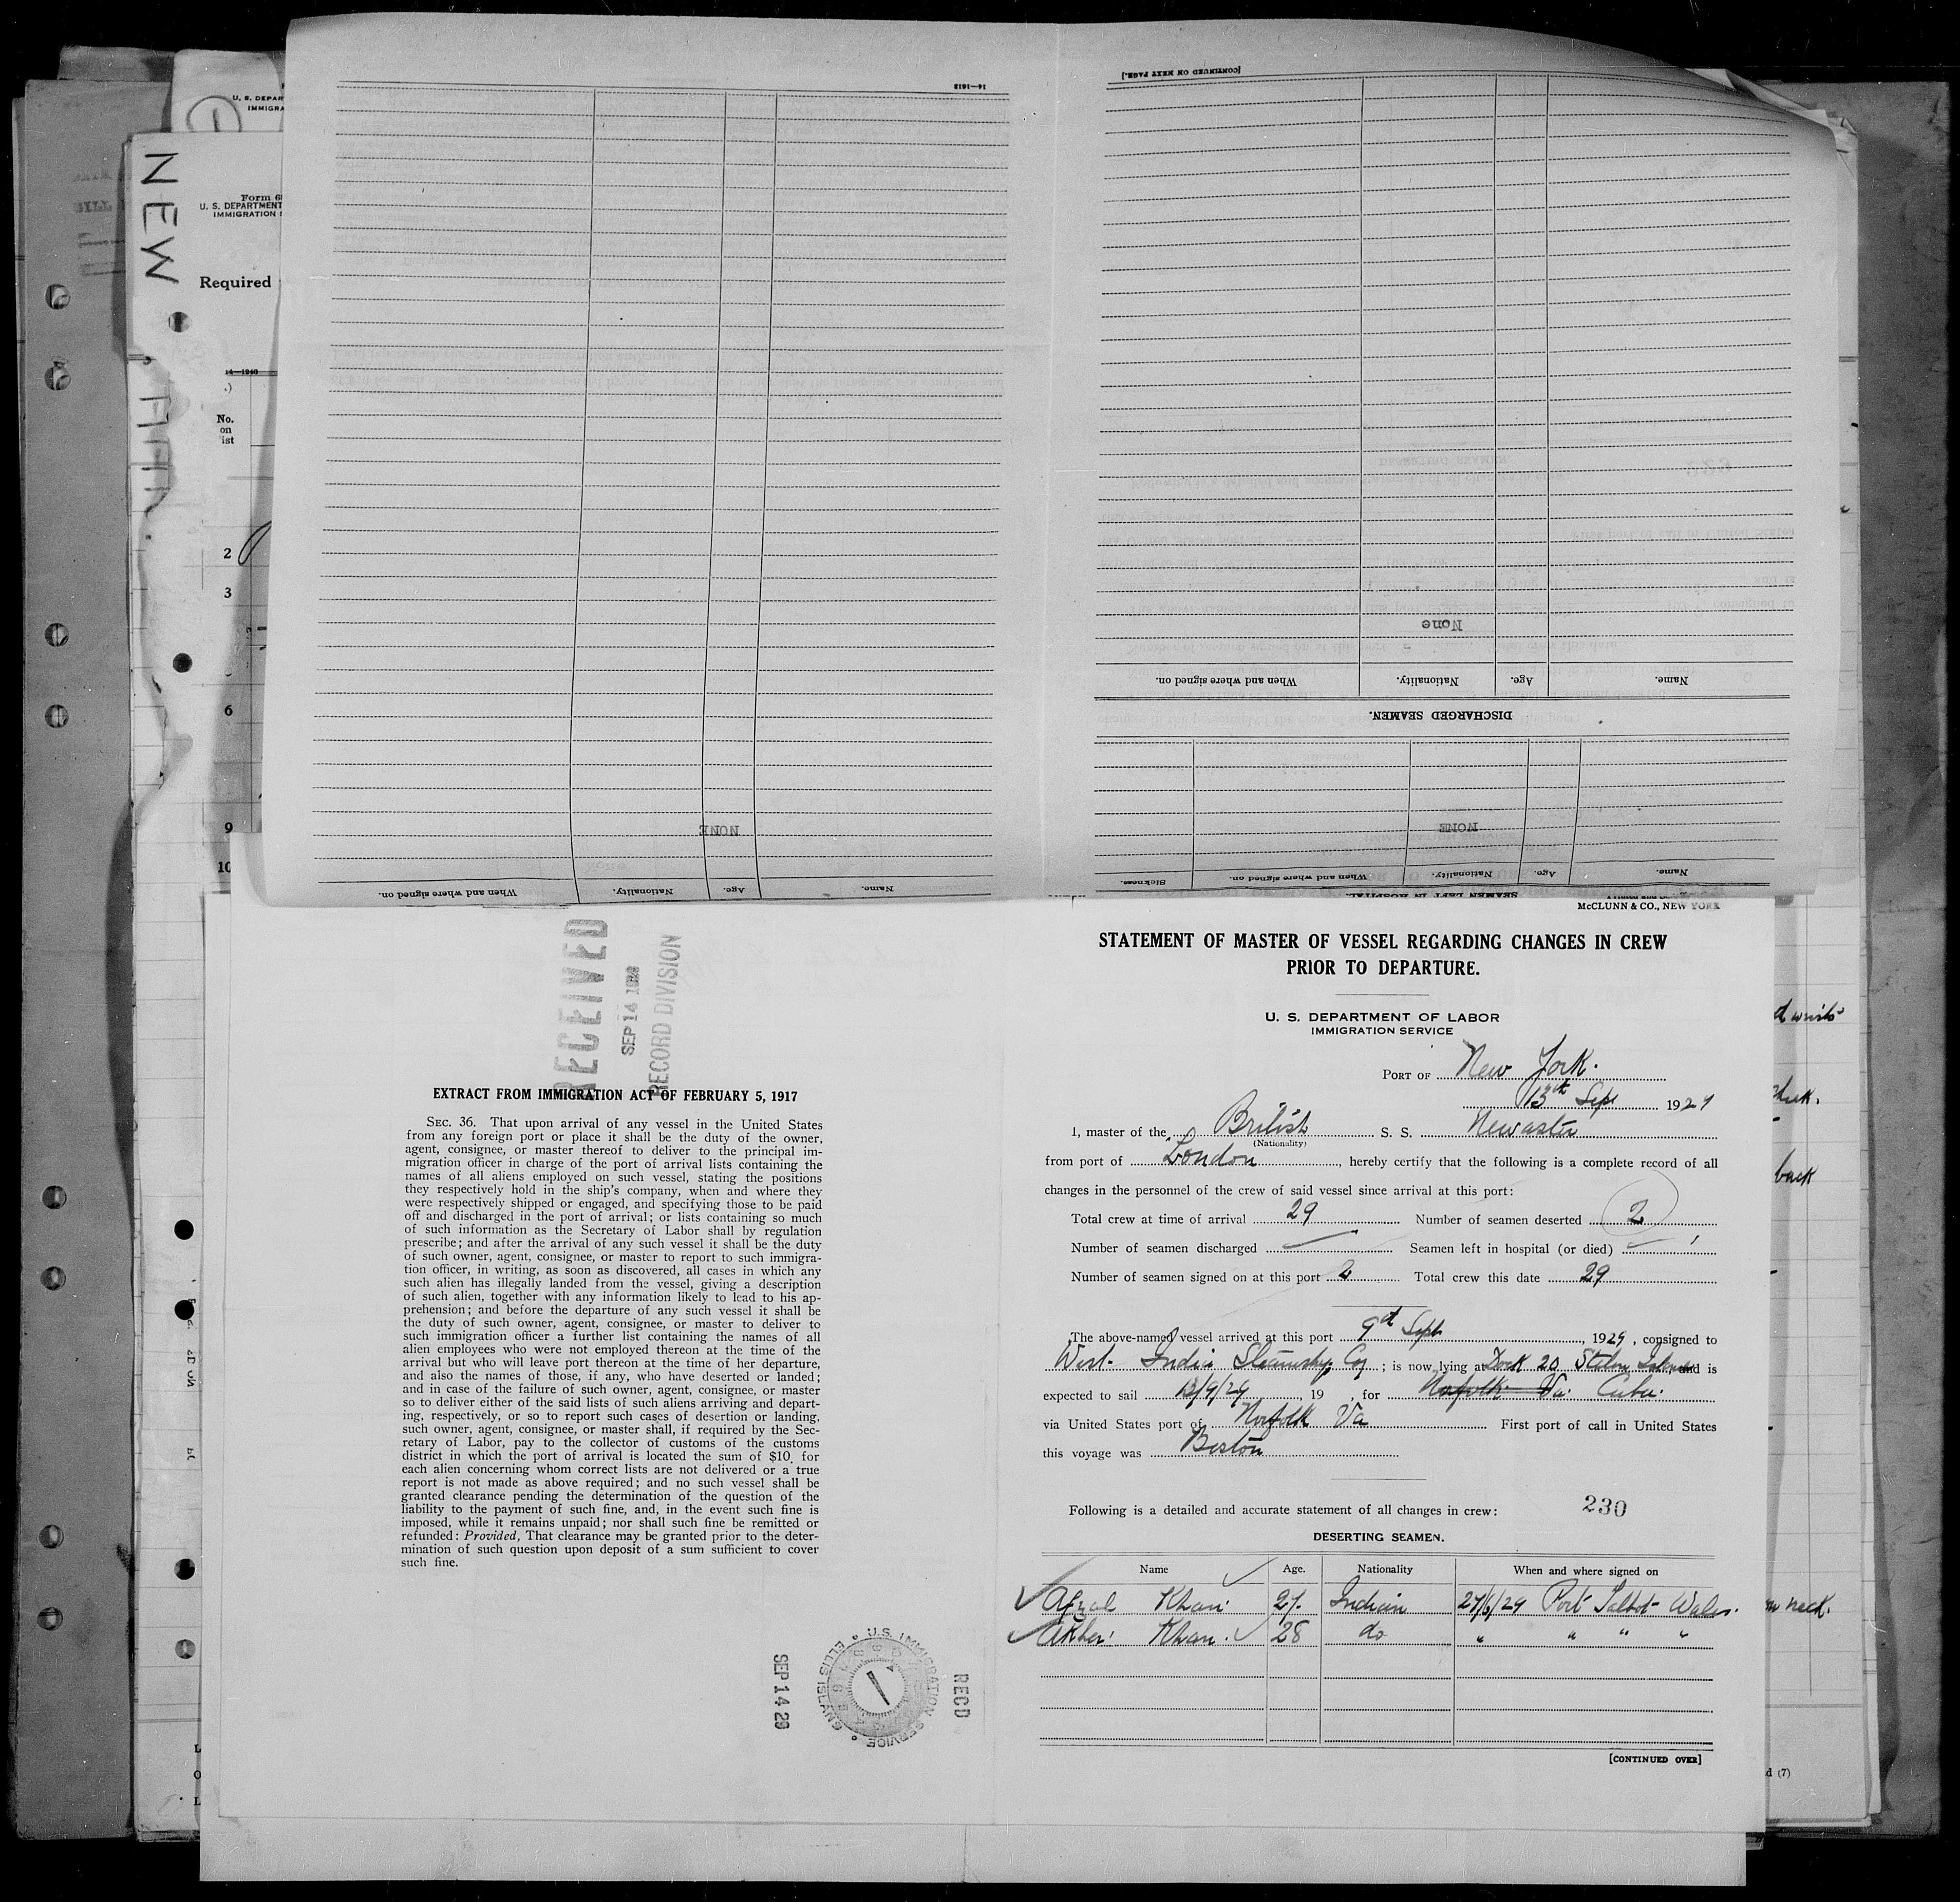 U. S. DEPAR
IMMIGRA
NEW
Form 6
U. S. DEPARTMENT
IMMIGRATION
Required
14—1940
No.
on
ist
2
3
6
9
10
14—1612
NONE
Name.
Age.
Nationality.
When and where signed on.
[CONTINUED ON NEXT PAGE.]
None
Name.
Age.
Nationality.
When and where signed on.
DISCHARGED SEAMEN.
NONE
Name.
Age.
Nationality.
When and where signed on.
Sickness.
SEAMEN LEFT IN HOSPITAL.
RECEIVED
SEP 14
RECORD DIVISION
EXTRACT FROM IMMIGRATION ACT OF FEBRUARY 5, 1917
SEC. 36. That upon arrival of any vessel in the United States
from any foreign port or place it shall be the duty of the owner,
agent, consignee, or master thereof to deliver to the principal im-
migration officer in charge of the port of arrival lists containing the
names of all aliens employed on such vessel, stating the positions
they respectively hold in the ship's company, when and where they
were respectively shipped or engaged, and specifying those to be paid
off and discharged in the port of arrival; or lists containing so much
of such information as the Secretary of Labor shall by regulation
prescribe; and after the arrival of any such vessel it shall be the duty
of such owner, agent, consignee, or master to report to such immigra-
tion officer, in writing, as soon as discovered, all cases in which any
such alien has illegally landed from the vessel, giving a description
of such alien, together with any information likely to lead to his ap-
prehension; and before the departure of any such vessel it shall be
the duty of such owner, agent, consignee, or master to deliver to
such immigration officer a further list containing the names of all
alien employees who were not employed thereon at the time of the
arrival but who will leave port thereon at the time of her departure,
and also the names of those, if any, who have deserted or landed;
and in case of the failure of such owner, agent, consignee, or master
so to deliver either of the said lists of such aliens arriving and depart-
ing, respectively, or so to report such cases of desertion or landing,
such owner, agent, consignee, or master shall, if required by the Sec-
retary of Labor, pay to the collector of customs of the customs
district in which the port of arrival is located the sum of $10. for
each alien concerning whom correct lists are not delivered or a true
report is not made as above required; and no such vessel shall be
granted clearance pending the determination of the question of the
liability to the payment of such fine, and, in the event such fine is
imposed, while it remains unpaid; nor shall such fine be remitted or
refunded: Provided, That clearance may be granted prior to the deter-
mination of such question upon deposit of a sum sufficient to cover
such fine.
SEP 14 29
U.S. IMMIGRATION SERVICE • ELLIS ISLAND •
RECD
McCLUNN & CO., NEW YORK
STATEMENT OF MASTER OF VESSEL REGARDING CHANGES IN CREW
PRIOR TO DEPARTURE.
U. S. DEPARTMENT OF LABOR
IMMIGRATION SERVICE
PORT OF New York.
13th Sept 1929
I, master of the British S. S. Newaster
(Nationality)
from port of London, hereby certify that the following is a complete record of all
changes in the personnel of the crew of said vessel since arrival at this port:
Total crew at time of arrival 29 Number of seamen deserted 2
Number of seamen discharged — Seamen left in hospital (or died) —
Number of seamen signed on at this port 2 Total crew this date 29
The above-named vessel arrived at this port 9th Sept, 1929, consigned to
West India Steamship Coy; is now lying at Dock 20 Staten Island and is
expected to sail 13/9/29, 19 , for Norfolk Va. Cuba.
via United States port of Norfolk Va First port of call in United States
this voyage was Boston
Following is a detailed and accurate statement of all changes in crew: 230
DESERTING SEAMEN.
Name Age. Nationality When and where signed on
Afzal Khan. 27. Indian 27/6/29 Port Talbot Wales.
Akber Khan. 28 do " " " "
[CONTINUED OVER]
back
neck.
d (7)